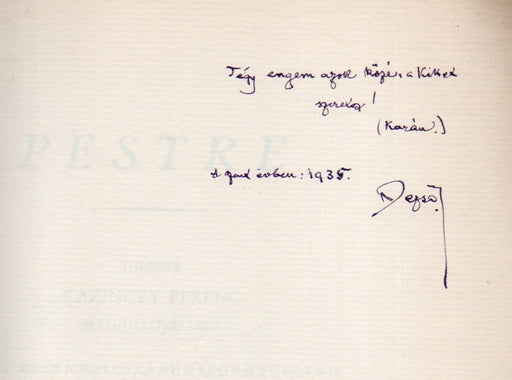 Tégy engem azok közé, a kiket
szeretsz!
(Korán.)
A szent évben: 1935.
Dezső
PESTRE
TÖREDÉK
KAZINCZY FERENC